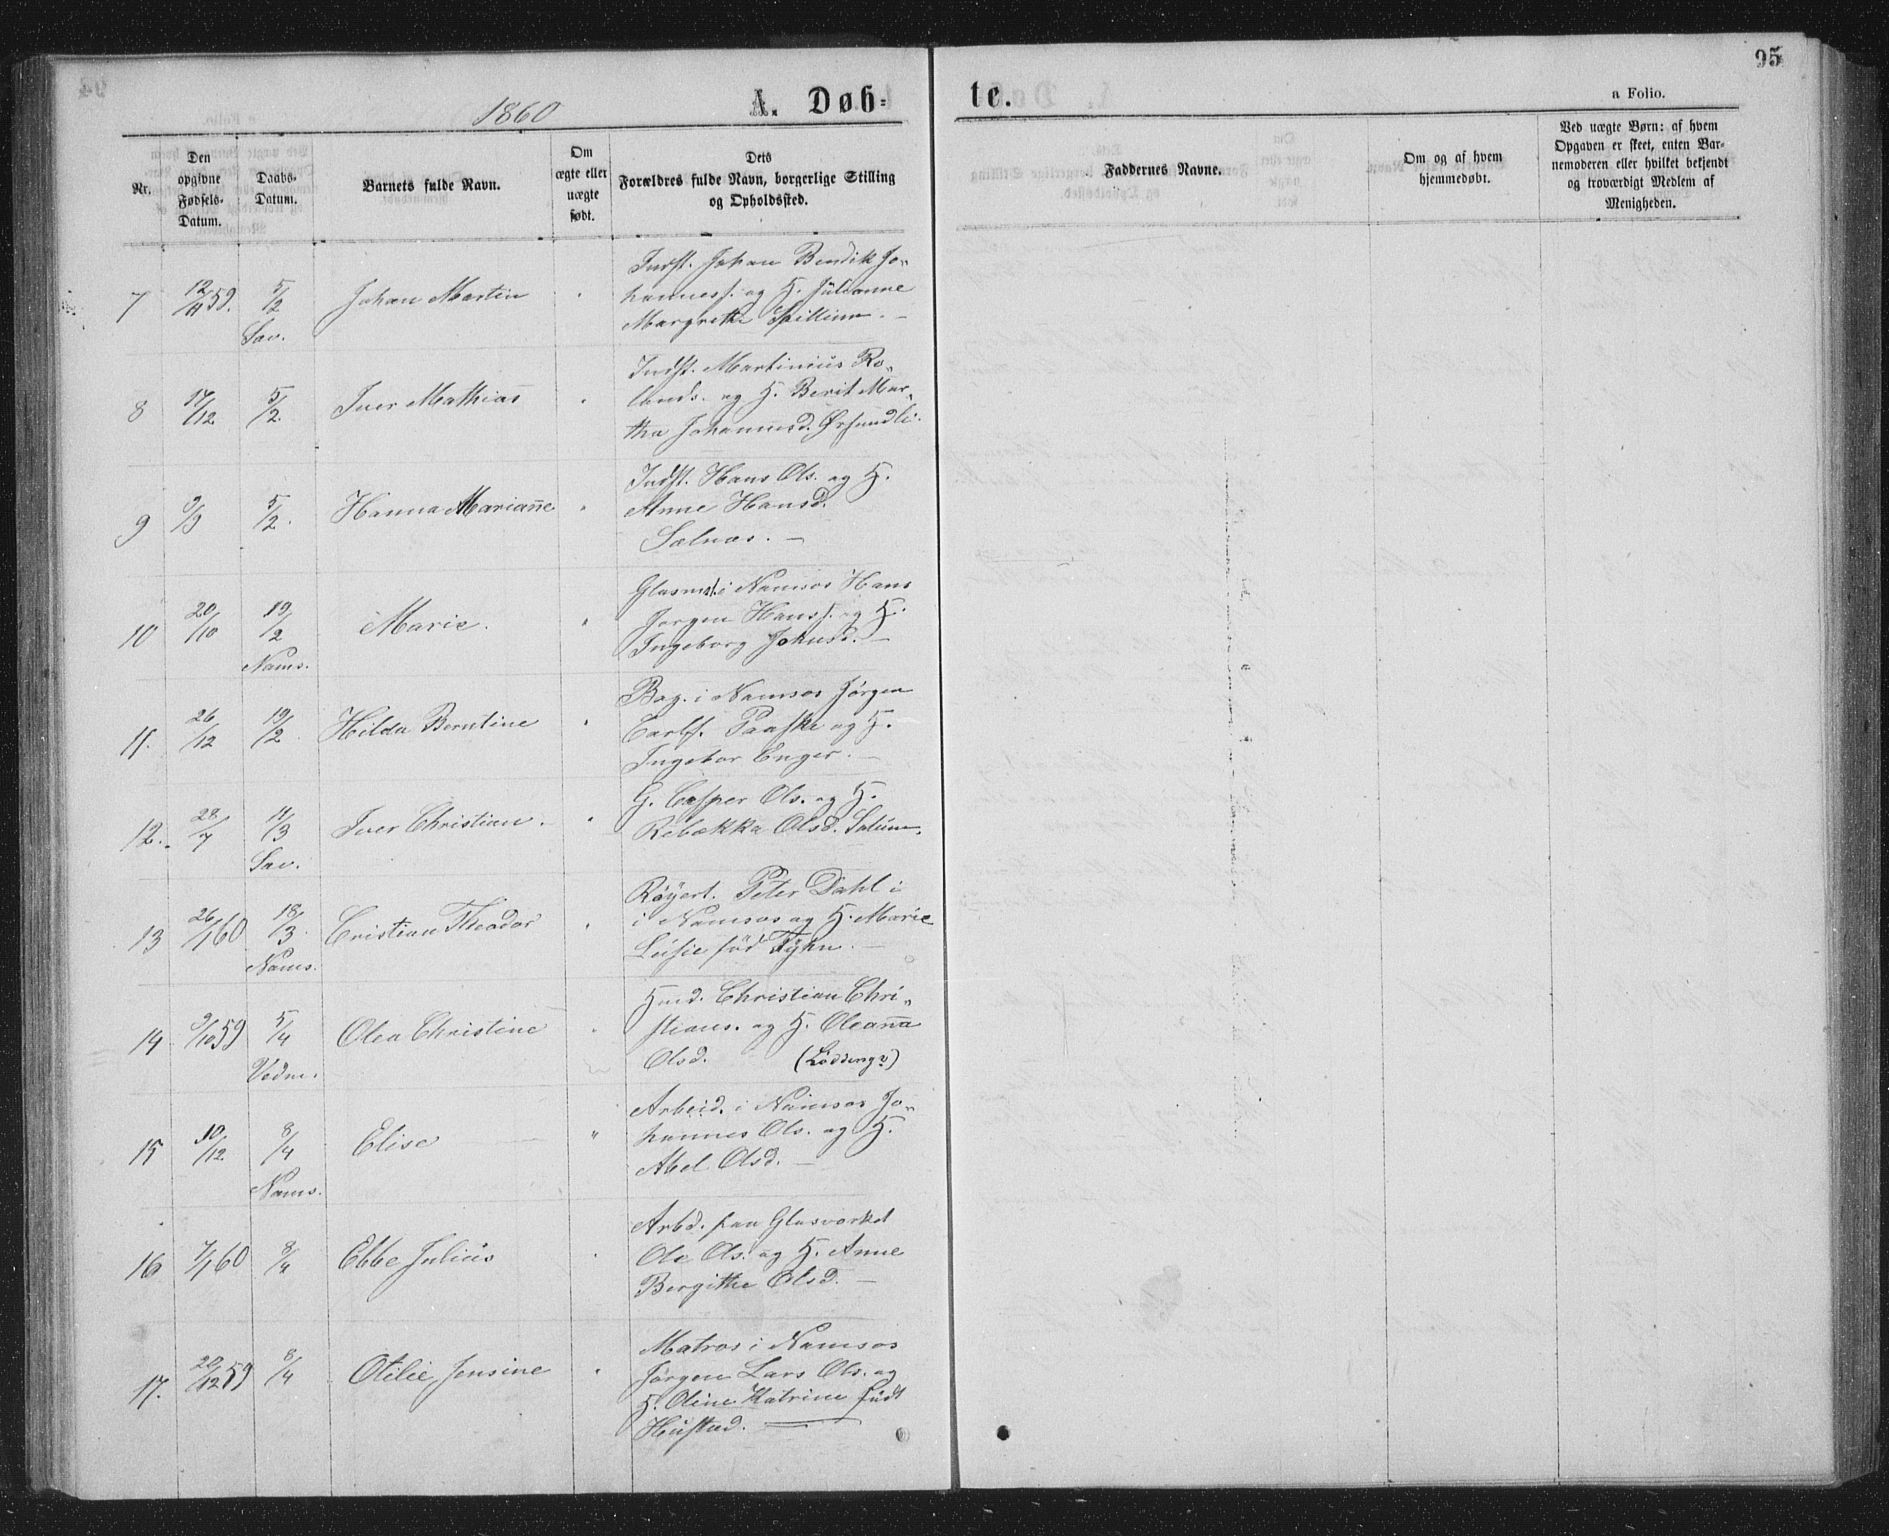 95
1860
A. Døb-
te.
a Folio.
Nr.
Den
opgivne
Fødsels-
Datum.
Daabs-
Datum.
Barnets fulde Navn.
Om
ægte eller
uægte
født.
Dets
Forældres fulde Navn, borgerlige Stilling
og Opholdssted.
Faddernes Navne.
Om og af hvem
hjemmedøbt.
Ved uægte Børn: af hvem
Opgaven er skeet, enten Bar-
nemoderen eller hvilket bekjendt
og troværdigt Medlem af
Menigheden.
7 12/11 59. 5/2 Sav. Johan Martin
Indst. Johan Bendik Jo-
hanness. og H. Julianne
Margrethe Spillum. —
8 17/12 5/2. Iver Mathias
Indst. Martinius Ro-
lands. og H. Berit Mar-
tha Johannesd.
9 9/9 5/2. Hanna Marianne
Indst. Hans Ols. og H.
Anne Hansd.
Selnæs. —
10 20/10 19/2 Nams. Marie.
Glasm. i Namsos Hans
Jørgen Hanss. og H.
Ingeborg Johnsd. —
11. 26/12 19/2 Hilda Berntine
Bag. i Namsos Jørgen
Carlss. Paaske og H.
Ingebor Enger. —
12. 28/7 11/3 Sav. Iver Christian.
G. Casper Ols. og H.
Rebækka Olsd. Salum.
13 26/1 60 18/3 Nams. Cristian Theodor
Peter Dahl i
i Namsos og H. Marie
Lusie fød
14 9/10 59 5/4 Vedm. Olea Christine
Hmd. Christian Chri-
stians. og H. Oleanna
Olsd. (Lødding?)
15 10/12 8/4 Nams. Elise "
Arbeid. i Namsos Jo-
hannes Ols. og H.
Abel Olsd. —
16 7/1 60 8/4 Ebbe Julius
Arbd. paa Glasværket
Ole Ols. og H. Anne
Bergithe Olsd. —
17. 20/12 59 8/4 Otilie Jensine
Matros i Namsos
Jørgen Lars Ols. og
H. Oline Katrine født
Hustad. —